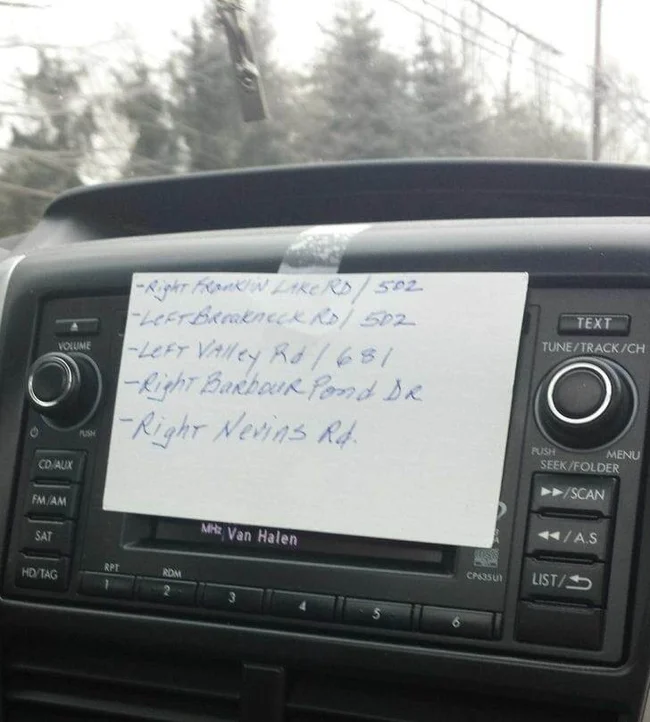 -Right Franklin Lake RD / 502
-Left Breakneck RD / 502
-Left Valley Rd / 681
-Right Barbour Pond DR
-Right Nevins Rd.
VOLUME
PUSH
CD/AUX
FM/AM
SAT
HD/TAG
TEXT
TUNE/TRACK/CH
PUSH MENU
SEEK/FOLDER
▶▶/SCAN
◀◀/A.S
LIST/
MHz Van Halen
CP635U1
RPT RDM
1 2 3 4 5 6